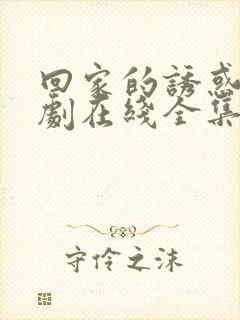 回家的誘惑
劇在綫全集
守伶之沫